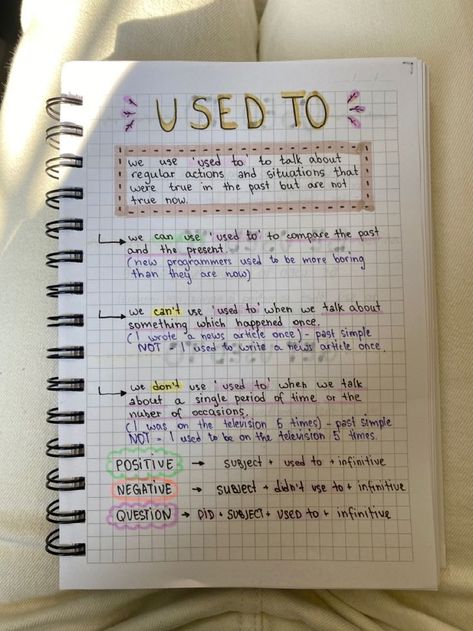 USED TO
we use 'used to' to talk about
regular actions and situations that
were true in the past but are not
true now.
we can use 'used to' to compare the past
and the present.
(new programmers used to be more boring
than they are now)
we can't use 'used to' when we talk about
something which happened once.
(I wrote a news article once) - past simple
NOT - I used to write a news article once.
we don't use 'used to' when we talk
about a single period of time or the
nuber of occasions.
(I was on the television 5 times) - past simple
NOT - I used to be on the television 5 times.
POSITIVE → subject + used to + infinitive
NEGATIVE → subject + didn't use to + infinitive
QUESTION → DID + SUBJECT + USED TO + infinitive